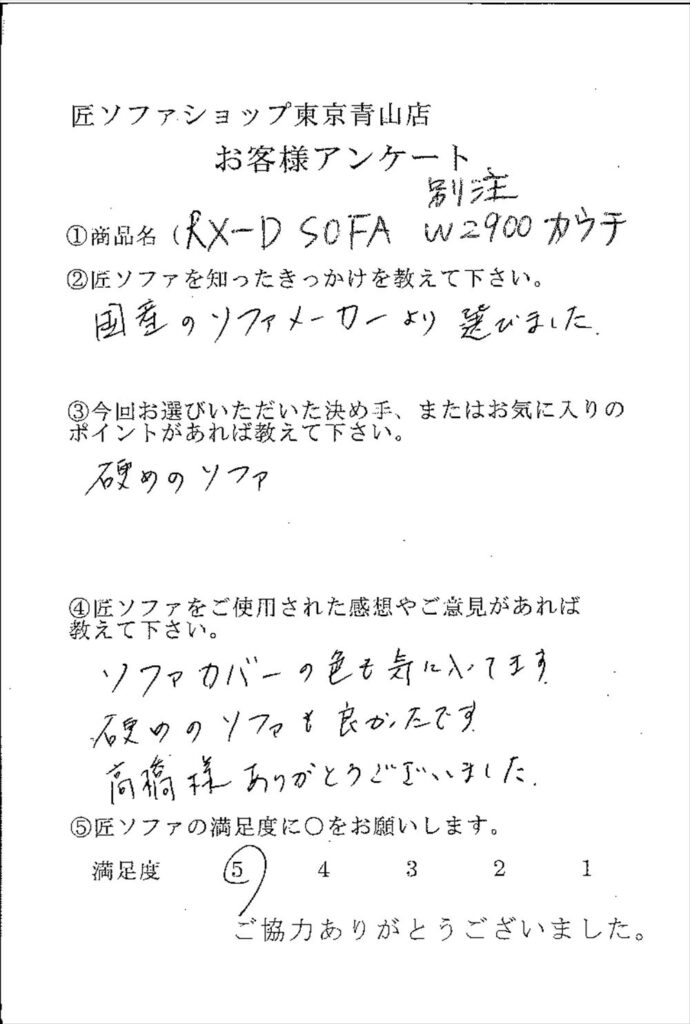 匠ソファショップ東京青山店
お客様アンケート
別注
①商品名（RX-D SOFA W2900 カウチ
②匠ソファを知ったきっかけを教えて下さい。
国産のソファメーカーより選びました.
③今回お選びいただいた決め手、またはお気に入りの
ポイントがあれば教えて下さい。
硬めのソファ
④匠ソファをご使用された感想やご意見があれば
教えて下さい。
ソファカバーの色も気に入ってます
硬めのソファも良かったです
高橋様ありがとうございました.
⑤匠ソファの満足度に○をお願いします。
満足度 5 4 3 2 1
ご協力ありがとうございました。